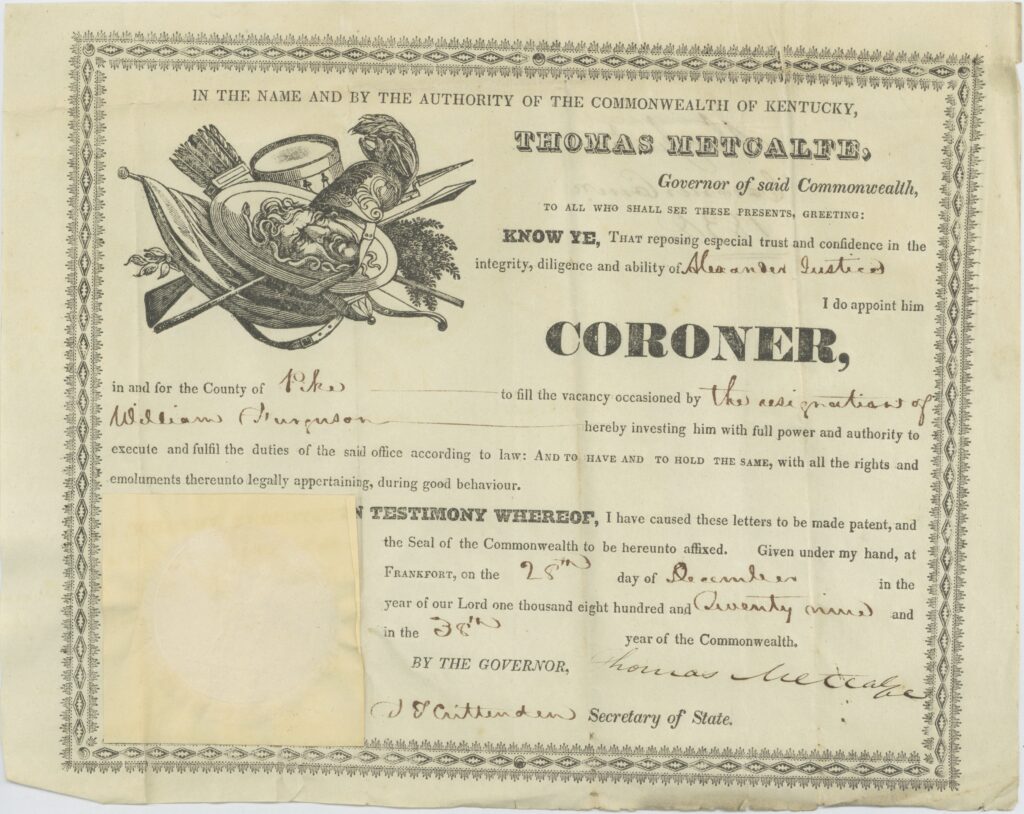 IN THE NAME AND BY THE AUTHORITY OF THE COMMONWEALTH OF KENTUCKY,
THOMAS METCALFE,
Governor of said Commonwealth,
TO ALL WHO SHALL SEE THESE PRESENTS, GREETING:
KNOW YE, THAT reposing especial trust and confidence in the
integrity, diligence and ability of Alexander Justice
I do appoint him
CORONER,
in and for the County of Pike to fill the vacancy occasioned by the resignation of
William Furguson hereby investing him with full power and authority to
execute and fulfil the duties of the said office according to law: AND TO HAVE AND TO HOLD THE SAME, with all the rights and
emoluments thereunto legally appertaining, during good behaviour.
N TESTIMONY WHEREOF, I have caused these letters to be made patent, and
the Seal of the Commonwealth to be hereunto affixed. Given under my hand, at
FRANKFORT, on the 28th day of December in the
year of our Lord one thousand eight hundred and Twenty nine and
in the 38th year of the Commonwealth.
BY THE GOVERNOR, Thomas Metcalfe
Crittenden Secretary of State.